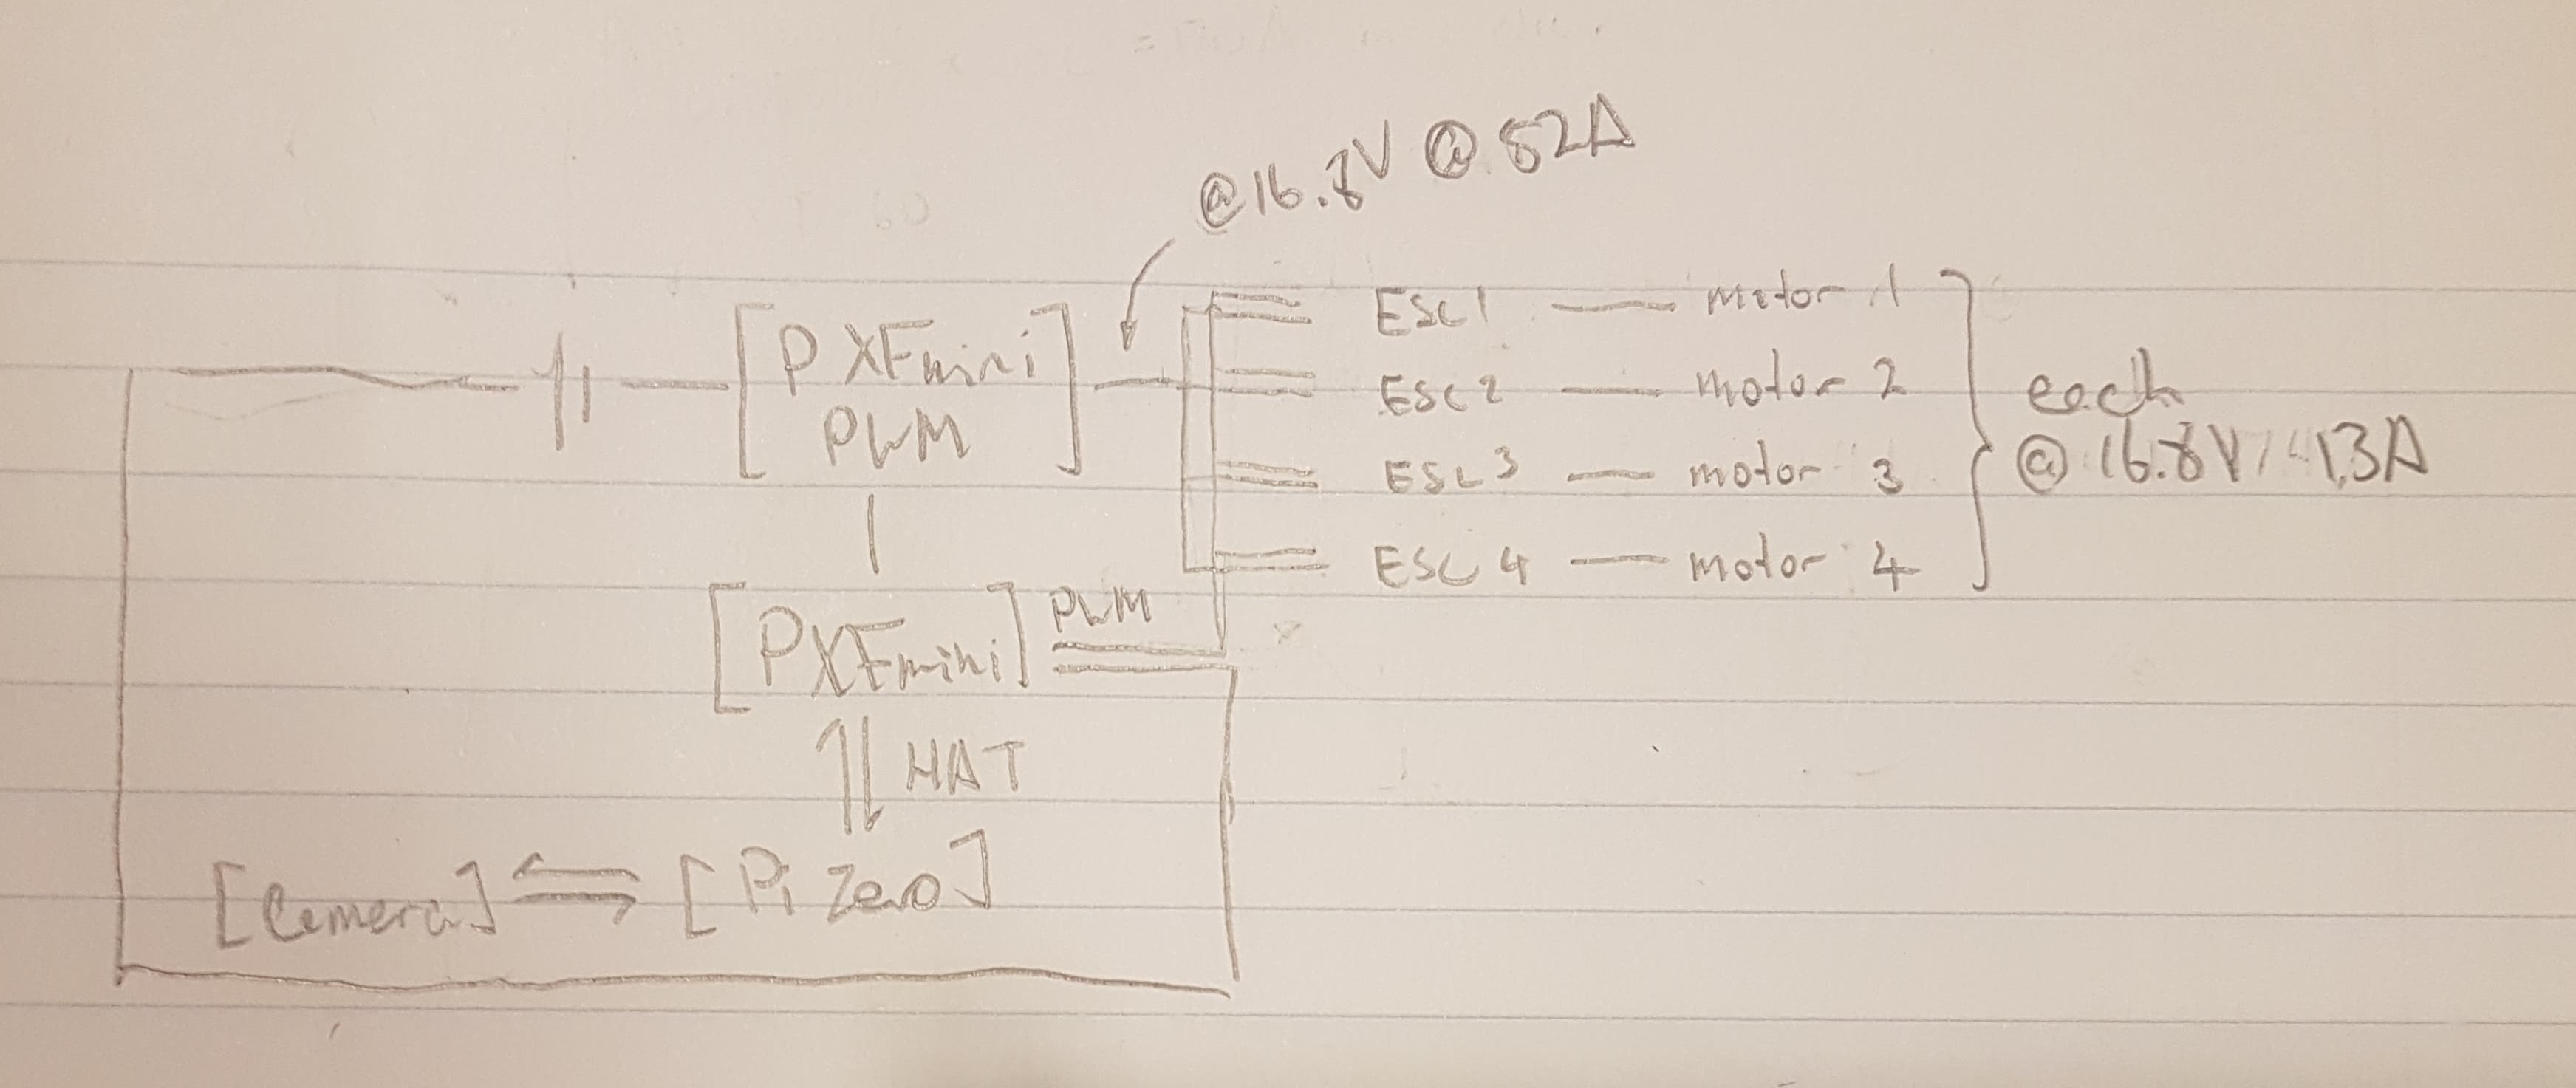 @16.8V @ 52A
[PXFmini
PWM]
ESC1 — motor 1
ESC2 — motor 2
ESC3 — motor 3
ESC 4 — motor 4
each
@ 16.8V / 13A
[PXFmini] PWM
HAT
[Camera] ⇌ [Pi Zero]